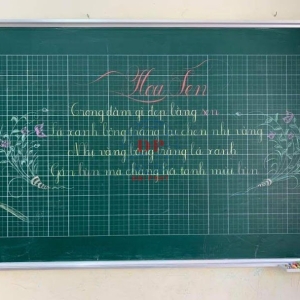 Hoa Sen
Trong đầm gì đẹp bằng sen
Lá xanh bông trắng lại chen nhị vàng
Nhị vàng bông trắng lá xanh
Gần bùn mà chẳng hôi tanh mùi bùn